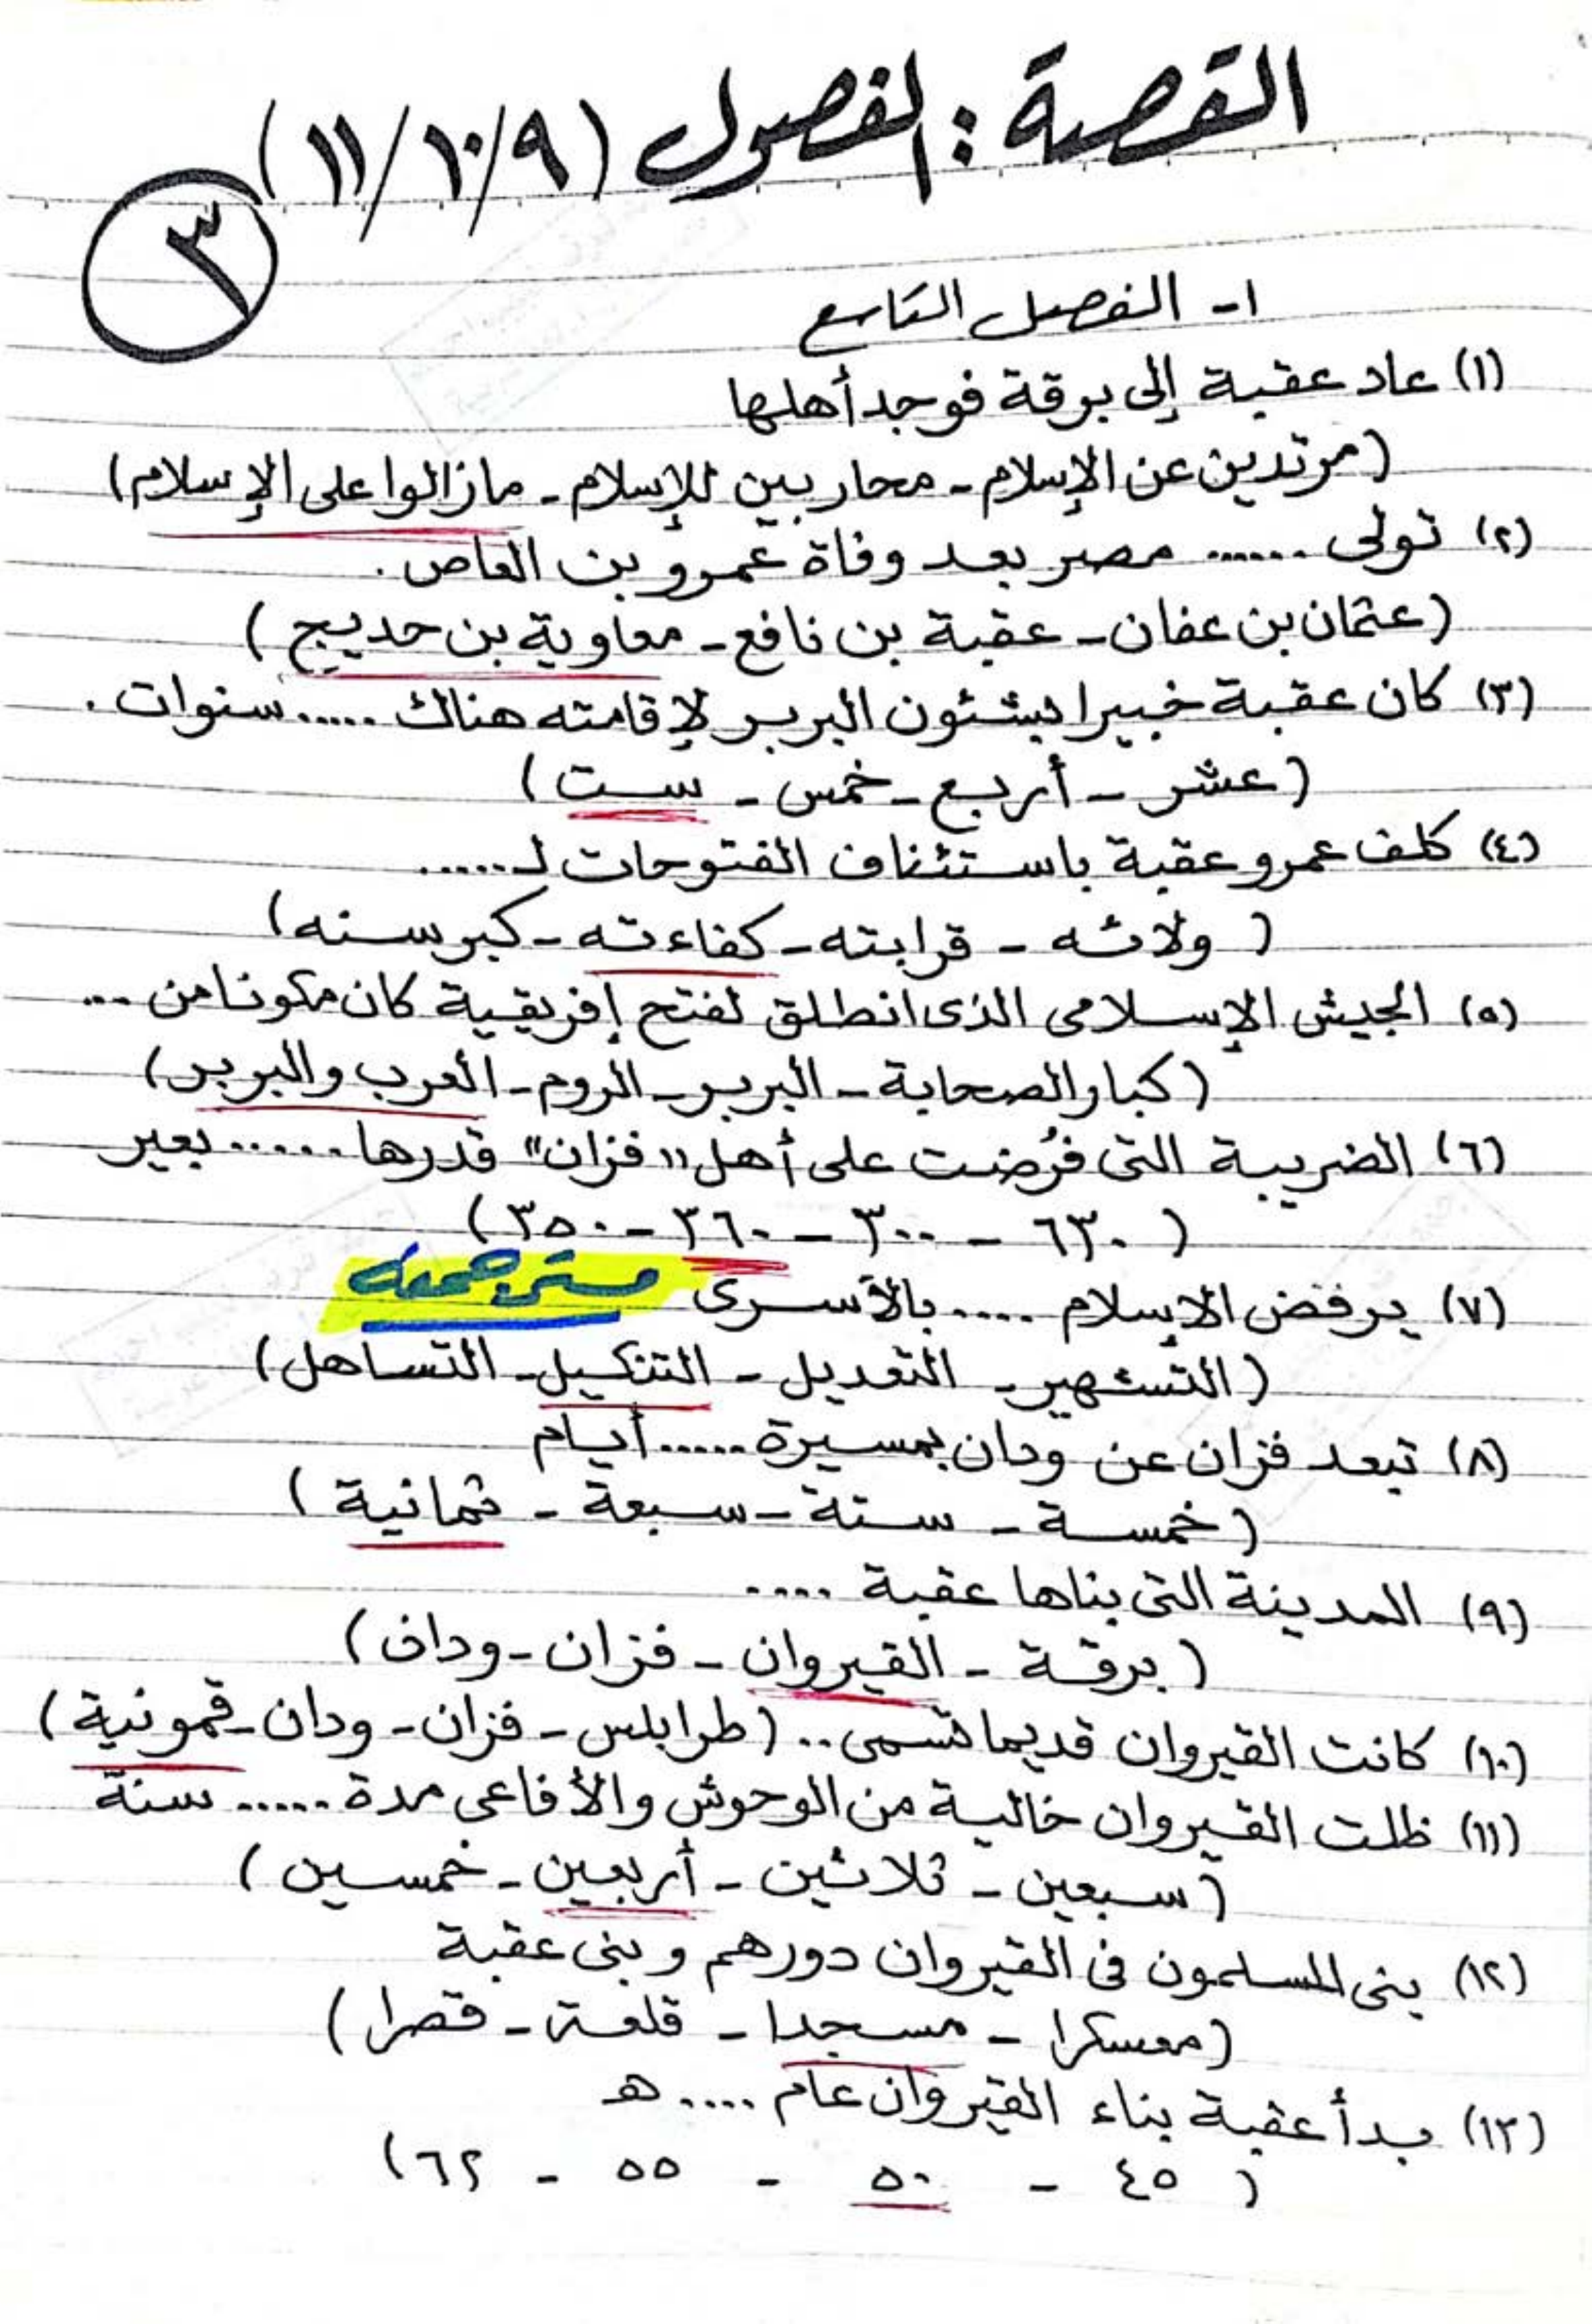 القصة: الفصول (٩/١٠/١١)
٣
١- الفصل التاسع
(١) عاد عقبة إلى برقة فوجد أهلها
(مرتدين عن الإسلام - محاربين للإسلام - مازالوا على الإسلام)
(٢) تولى ...... مصر بعد وفاة عمرو بن العاص.
(عثمان بن عفان - عقبة بن نافع - معاوية بن حديج)
(٣) كان عقبة خبيرا بشئون البربر لإقامته هناك ..... سنوات.
(عشر - أربع - خمس - ست)
(٤) كلف عمرو عقبة باستئناف الفتوحات لـ ......
(ولائه - قرابته - كفاءته - كبر سنه)
(٥) الجيش الإسلامى الذى انطلق لفتح إفريقية كان مكونا من ...
(كبار الصحابة - البربر - الروم - العرب والبربر)
(٦) الضريبة التى فُرضت على أهل "فزان" قدرها ...... بعير
(٦٣٠ - ٣٠٠ - ٣٦٠ - ٣٥٠)
(٧) يرفض الإسلام .... بالأسرى مستر جمعه
(التشهير - التعديل - التنكيل - التساهل)
(٨) تبعد فزان عن ودان بمسيرة ..... أيام
(خمسة - ستة - سبعة - ثمانية)
(٩) المدينة التى بناها عقبة ....
(برقة - القيروان - فزان - ودان)
(١٠) كانت القيروان قديما تسمى .. (طرابلس - فزان - ودان - قمونية)
(١١) ظلت القيروان خالية من الوحوش والأفاعى مدة ..... سنة
(سبعين - ثلاثين - أربعين - خمسين)
(١٢) بنى المسلمون فى القيروان دورهم وبنى عقبة
(معسكرا - مسجدا - قلعة - قصرا)
(١٣) بدأ عقبة بناء القيروان عام .... هـ
(٤٥ - ٥٠ - ٥٥ - ٦٢)